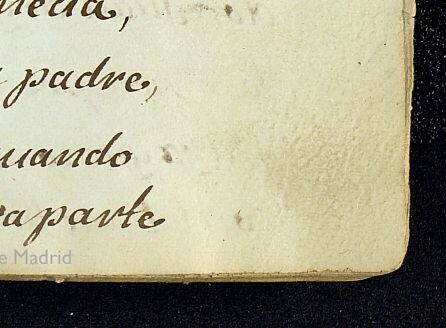 media,
padre,
quando
aparte
e Madrid